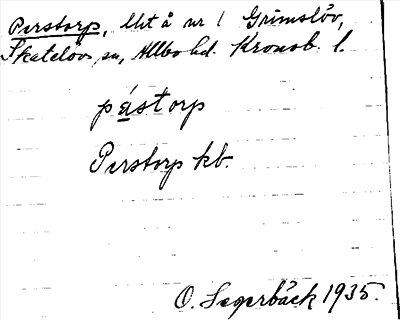 Perstorp, lht å nr 1 Grimslöv,
Skatelövs sn, Allbo hd. Kronob. l.
påstorp
Perstorp kb.
O. Segerbäck 1935.